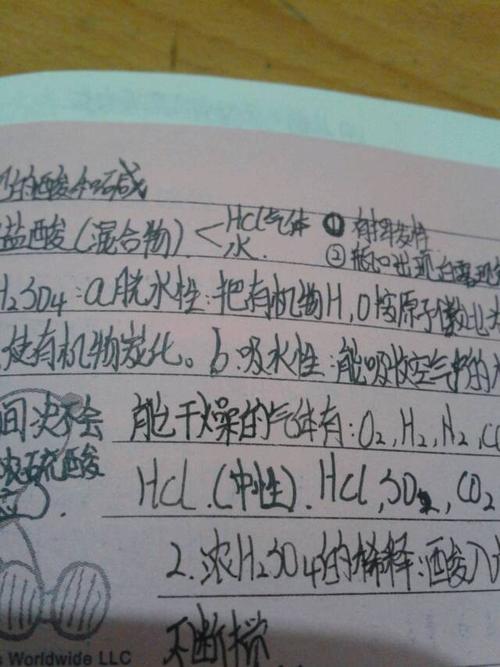 的酸和碱
盐酸(混合物)<HCl气体 ① 有挥发性
水. ② 瓶口出现白雾现
H₂SO₄:a.脱水性:把有机物H,O按原子个数比
使有机物炭化。b.吸水性:能吸收空气中的
间决不会 能干燥的气体有:O₂,H₂,N₂,CO
浓硫酸 HCl.(中性).HCl,SO₂,CO₂
应).
2.浓H₂SO₄的稀释:酸入
不断搅
s Worldwide LLC